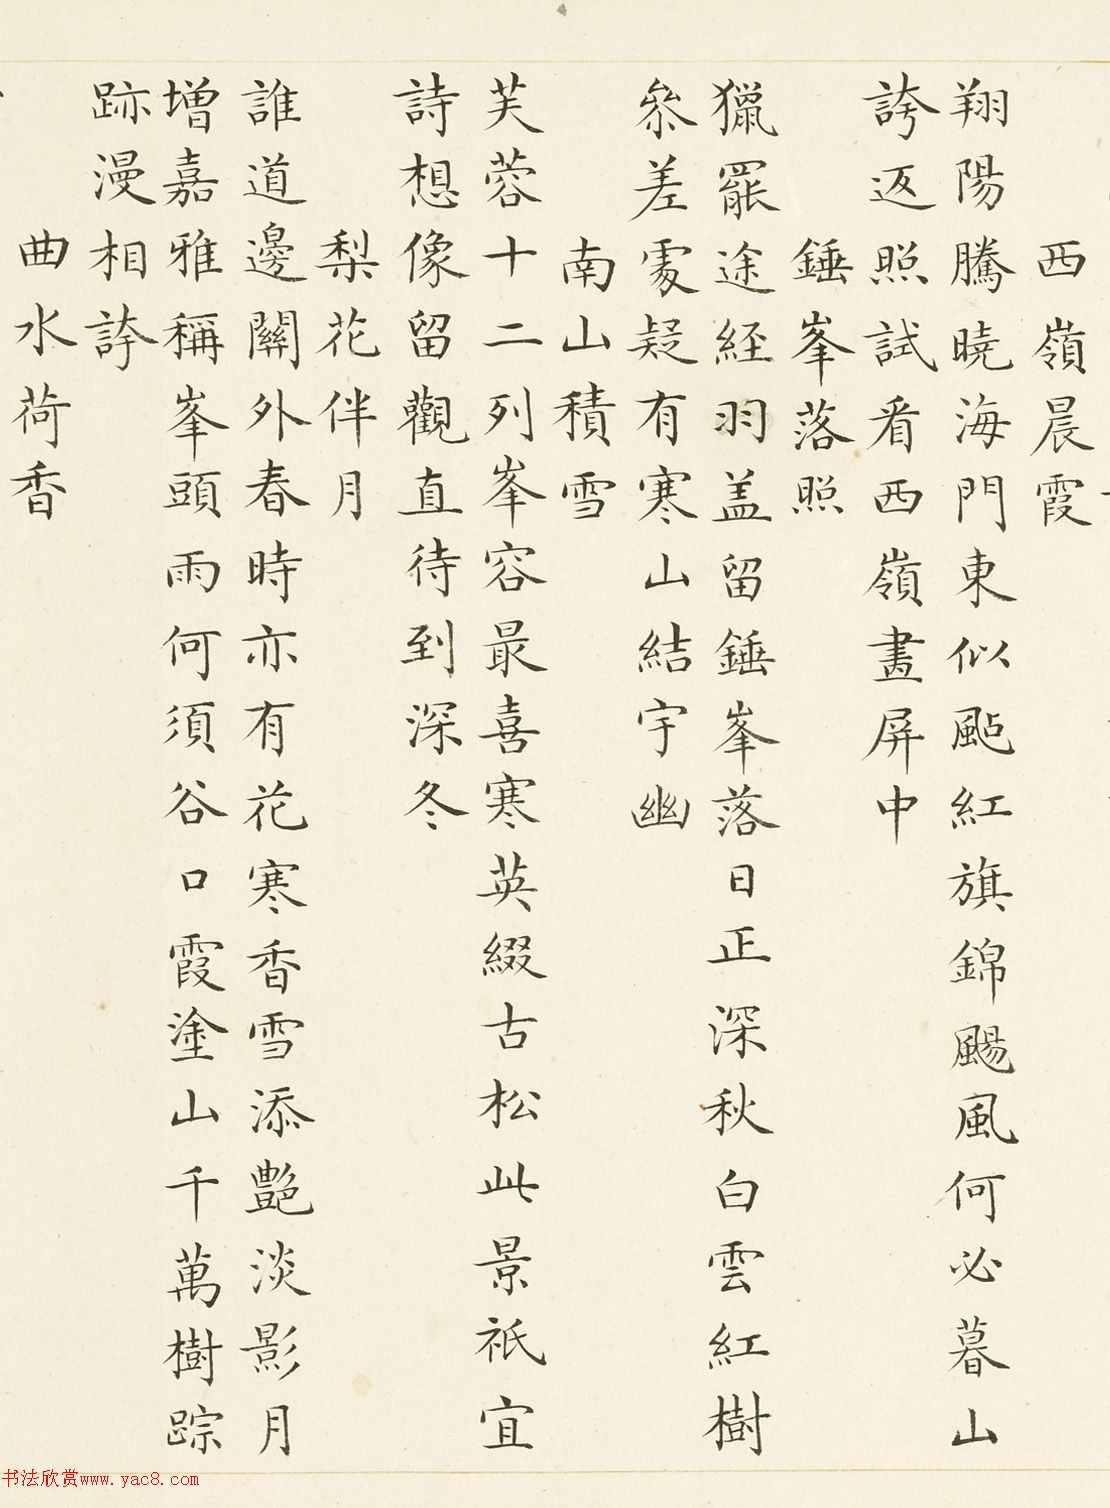 西嶺晨霞
翔陽騰曉海門東似颭紅旗錦颺風何必暮山
誇返照試看西嶺畫屏中
錘峯落照
獵罷途經羽盖留錘峯落日正深秋白雲紅樹
叅差處疑有寒山結宇幽
南山積雪
芙蓉十二列峯容最喜寒英綴古松此景祇宜
詩想像留觀直待到深冬
梨花伴月
誰道邊關外春時亦有花寒香雪添艶淡影月
增嘉雅稱峯頭雨何須谷口霞塗山千萬樹踪
跡漫相誇
曲水荷香
书法欣赏www.yac8.com